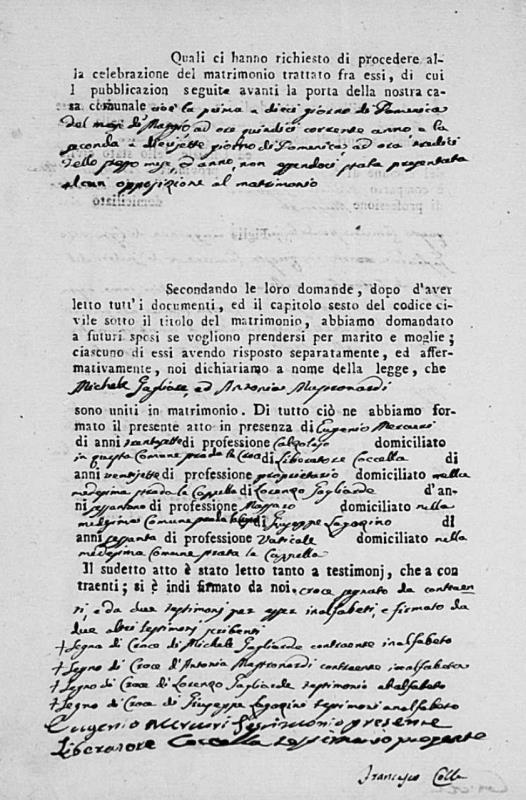 Quali ci hanno richiesto di procedere al-
la celebrazione del matrimonio trattato fra essi, di cui
l pubblicazion seguite avanti la porta della nostra ca-
sa comunale cioè la prima a dieci giorno di Domenica
del mese di Maggio ad ore quindici corrente anno, e la
seconda a diecisette giorno di Domenica ad ora
dello stesso mese, ed anno, non essendoci stata presentata
alcun opposizione al matrimonio
Secondando le loro domande, dopo d'aver
letto tutt'i documenti, ed il capitolo sesto del codice ci-
vile sotto il titolo del matrimonio, abbiamo domandato
a futuri sposi se vogliono prendersi per marito e moglie;
ciascuno di essi avendo risposto separatamente, ed affer-
mativamente, noi dichiariamo a nome della legge, che
Michele Gagliarde, ed Antonia Mastronardi
sono uniti in matrimonio. Di tutto ciò ne abbiamo for-
mato il presente atto in presenza di Eugenio Mercuri
di anni di professione Calzolajo domiciliato
in questa Comune di Liberatore Coccella di
anni ventisette di professione proprietario domiciliato nella
medesima strada la Cappella di Lorenzo Gagliarde d'an-
ni sessantuno di professione Massaro domiciliato nella
medesima Comune di Giuseppe Lagorino di
anni sessanta di professione Vaticale domiciliato nella
medesima Comune strata la Cappella
Il sudetto atto è stato letto tanto a testimonj, che a con
traenti; si è indi firmato da noi, croce segnato da contraen
ti, e da due testimonj per esser inalfabeti, e firmato da
due altri testimonj scribenti
+ Segno di Croce di Michele Gagliarde contraente inalfabeto
+ Segno di Croce d'Antonia Mastronardi contraente inalfabeta
+ Segno di Croce di Lorenzo Gagliarde testimonio alalfabeto
+ Segno di Croce di Giuseppe Lagorino testimonj analfabeto
Eugenio Mercuri Testimonio presente
Liberatore Coccella testimonio presente
Francesco Colla